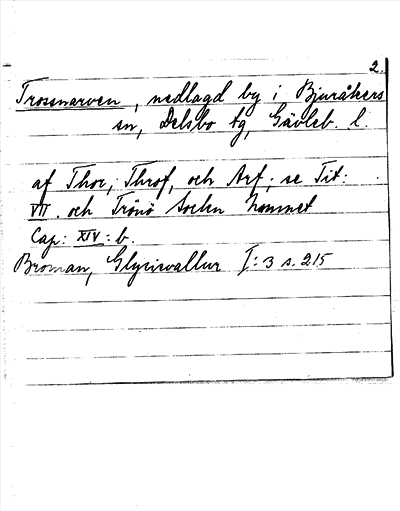 2.
Trossnarven, nedlagd by i Bjuråkers
sn, Delsbo tg, Gävleb. l.
af Thor, Throf, och Arf; se Tit:
VII. och Trönö Sochn Nomnet
Cap: XIV: b.
Broman, Glysisvallur I: 3 s. 215